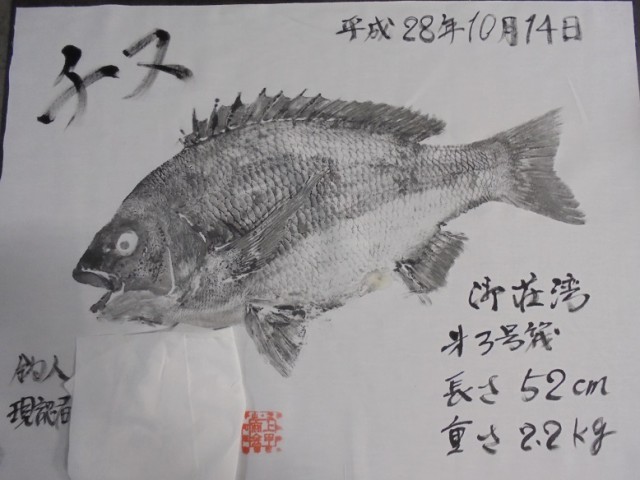 チヌ
平成28年10月14日
御荘湾
第3号筏
長さ 52cm
重さ 2.2kg
釣人
現認者